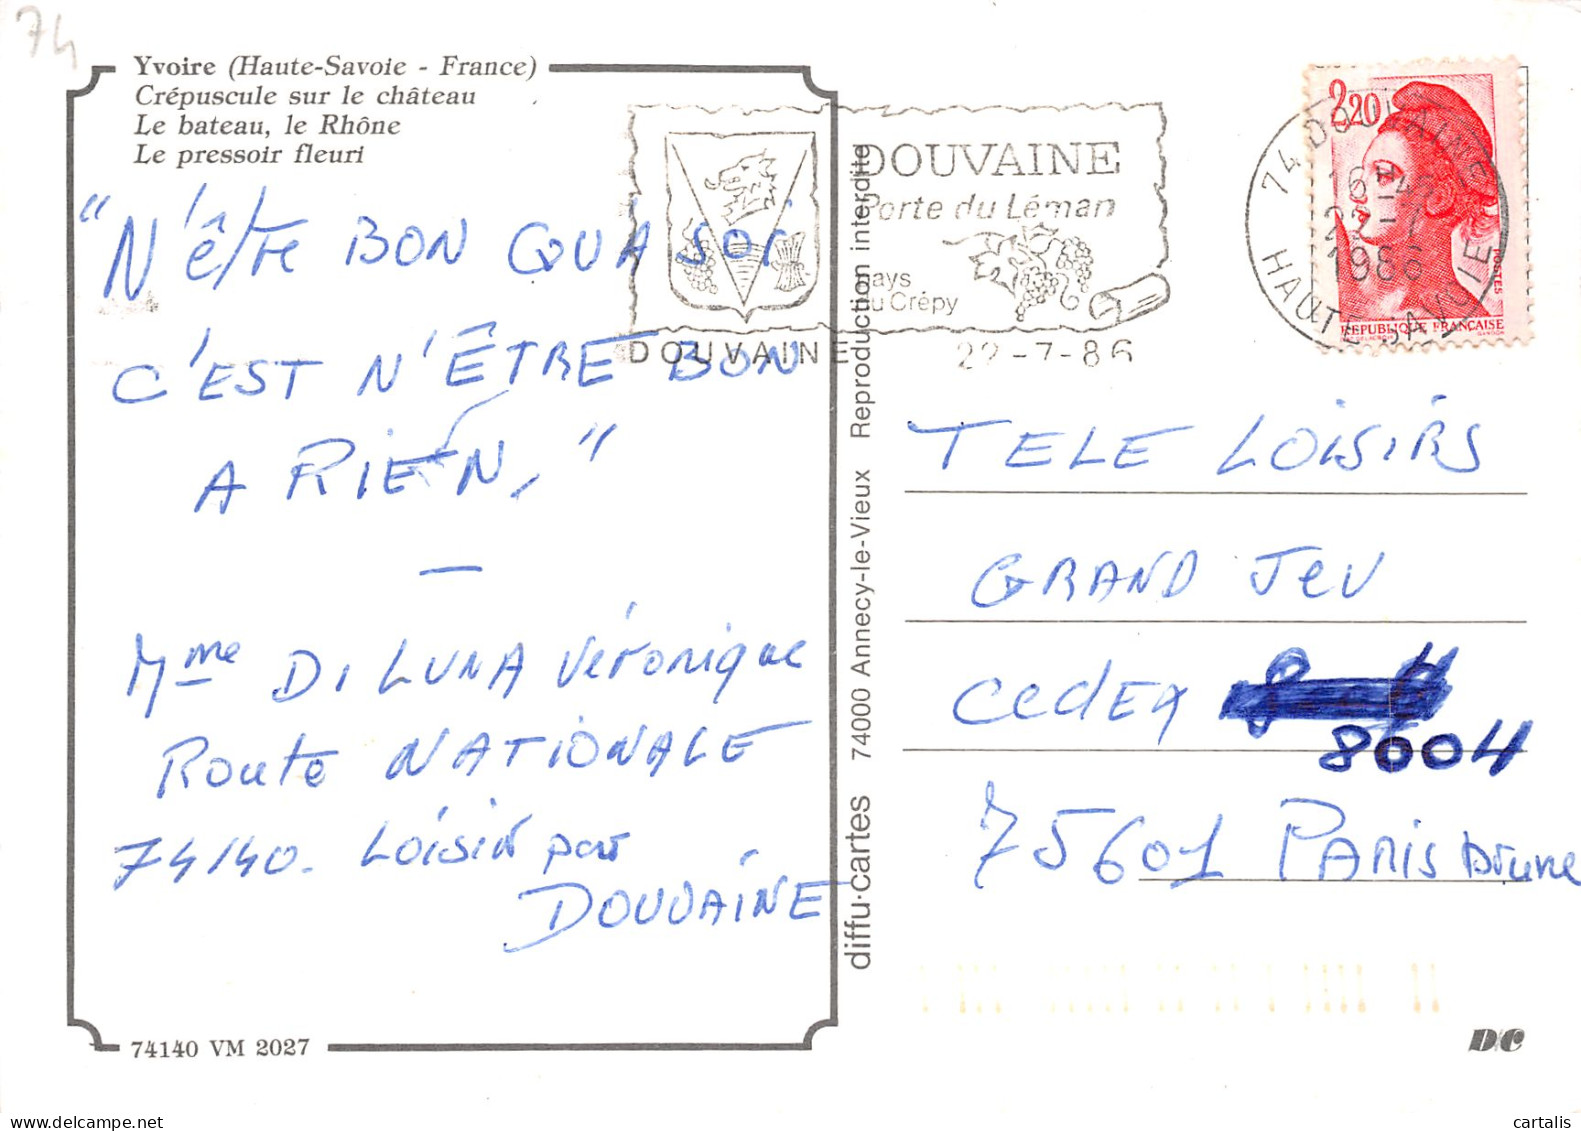 74
Yvoire (Haute-Savoie - France)
Crépuscule sur le château
Le bateau, le Rhône
Le pressoir fleuri
"N'être BON QU'À SOI
C'EST N'ÊTRE BON
A RIEN,"
—
Mme DI LUNA Véronique
Route NATIONALE
74140. Loisin par
DOUVAINE
74140 VM 2027
DOUVAINE
Porte du Léman
Pays
du Crépy
DOUVAINE 22-7-86
2,20
POSTES
REPUBLIQUE FRANÇAISE
74 DOUVAINE
16H
22-7
1986
HAUTE SAVOIE
diffu·cartes 74000 Annecy-le-Vieux Reproduction interdite
TELE LOISIRS
GRAND JEU
CEDEX
8004
75601 PARIS Brune
D/C
cartalis